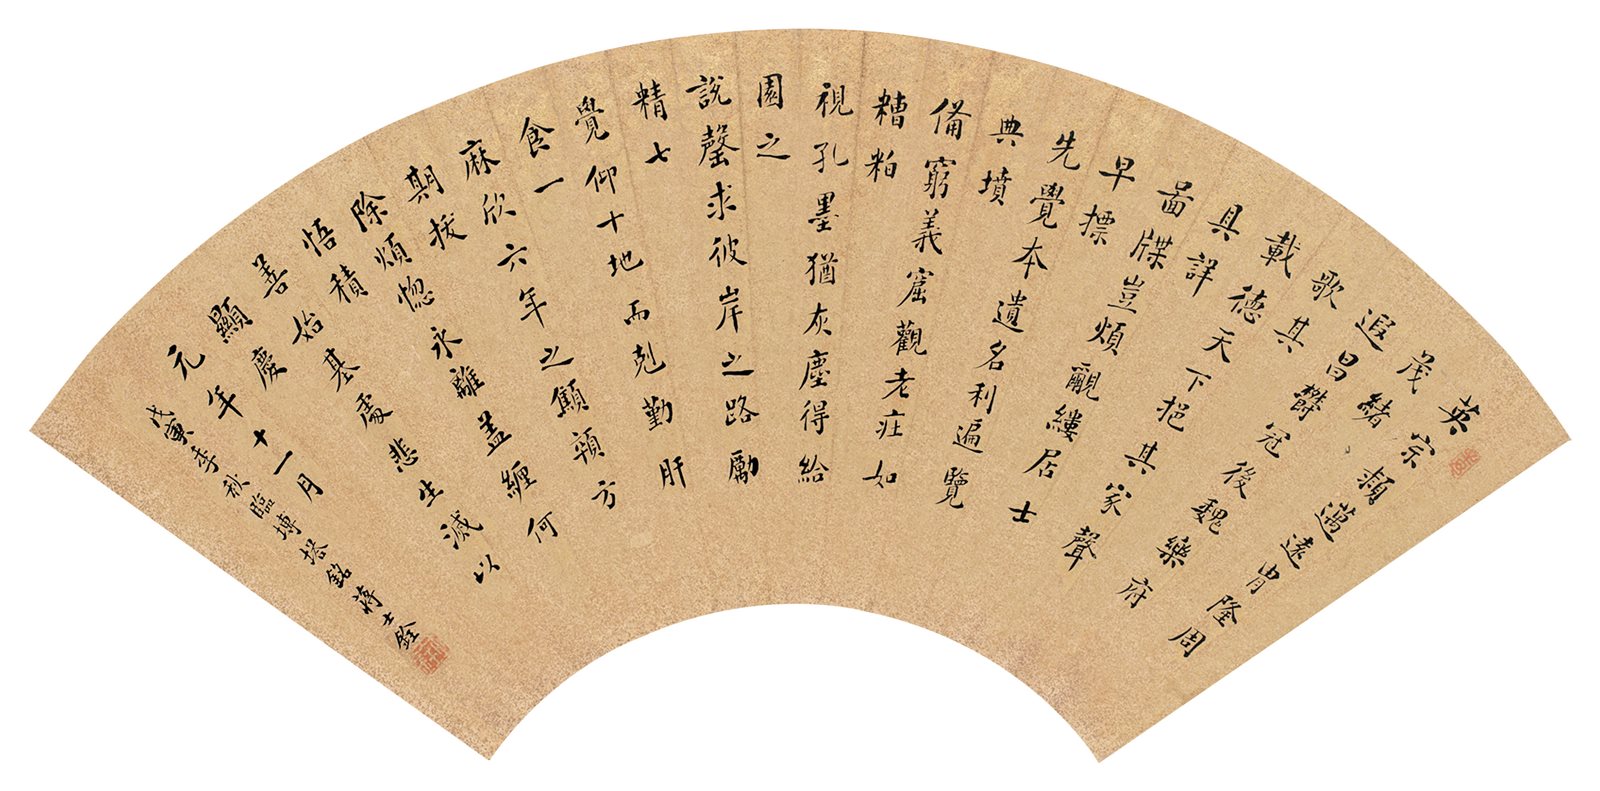 英宗穎邁遠冑隆周
茂緒
遐昌欝冠後魏樂府
歌其
載德天下挹其家聲
具詳
啚牒豈煩覼縷居士
早標
先覺本遺名利遍覽
典墳
備窮義窟觀老莊如
糟粕
視孔墨猶灰塵得給
園之
說罄求彼岸之路勵
精七
覺仰十地而剋勤肝
食一
麻欣六年之顦顇方
期拔
除煩惚永離蓋纏何
悟積
善始基處悲生滅以
顯慶
元年十一月
戊寅季秋臨塼塔銘蔣士銓